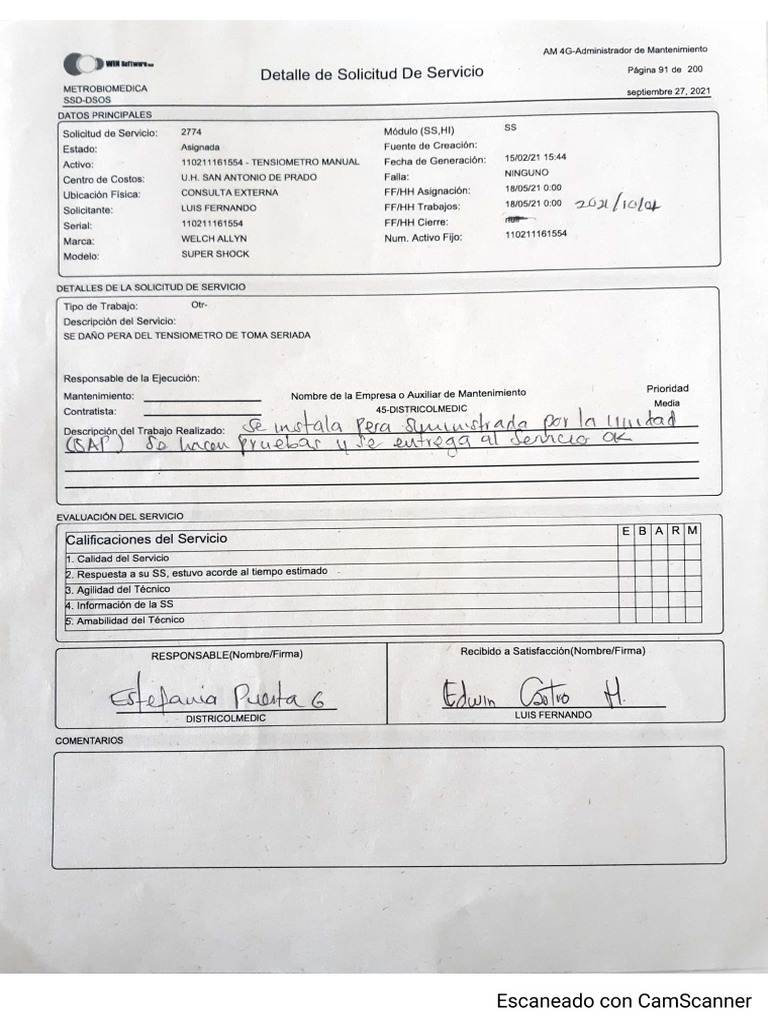 WIN Software
AM 4G-Administrador de Mantenimiento
Detalle de Solicitud De Servicio
Página 91 de 200
METROBIOMEDICA
SSD-DSOS
septiembre 27, 2021
DATOS PRINCIPALES
Solicitud de Servicio: 2774 Módulo (SS,HI) SS
Estado: Asignada Fuente de Creación:
Activo: 110211161554 - TENSIOMETRO MANUAL Fecha de Generación: 15/02/21 15:44
Centro de Costos: U.H. SAN ANTONIO DE PRADO Falla: NINGUNO
Ubicación Física: CONSULTA EXTERNA FF/HH Asignación: 18/05/21 0:00
Solicitante: LUIS FERNANDO FF/HH Trabajos: 18/05/21 0:00 2021/10/01
Serial: 110211161554 FF/HH Cierre:
Marca: WELCH ALLYN Num. Activo Fijo: 110211161554
Modelo: SUPER SHOCK
DETALLES DE LA SOLICITUD DE SERVICIO
Tipo de Trabajo: Otr-
Descripción del Servicio:
SE DAÑO PERA DEL TENSIOMETRO DE TOMA SERIADA
Responsable de la Ejecución:
Mantenimiento: Nombre de la Empresa o Auxiliar de Mantenimiento Prioridad
Contratista: 45-DISTRICOLMEDIC Media
Descripción del Trabajo Realizado: Se instala Pera suministrada por la Unidad
(SAP) Se hacen pruebas y se entrega al servicio OK
EVALUACIÓN DEL SERVICIO
Calificaciones del Servicio E B A R M
1. Calidad del Servicio
2. Respuesta a su SS, estuvo acorde al tiempo estimado
3. Agilidad del Técnico
4. Información de la SS
5. Amabilidad del Técnico
RESPONSABLE(Nombre/Firma) Recibido a Satisfacción(Nombre/Firma)
Estefania Puerta G Edwin Castro M.
DISTRICOLMEDIC LUIS FERNANDO
COMENTARIOS
Escaneado con CamScanner